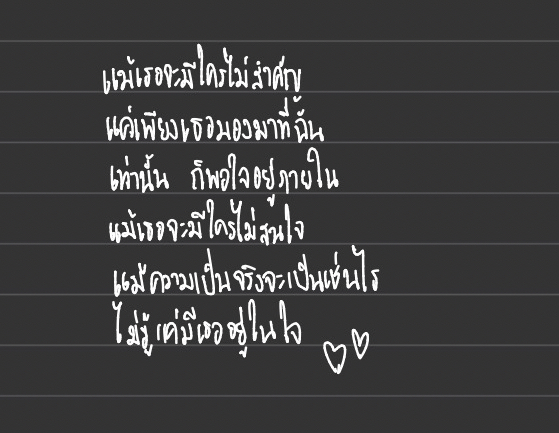 แม้เธอจะมีใครไม่สำคัญ
แค่เพียงเธอมองมาที่ฉัน
เท่านั้น ก็พอใจอยู่ภายใน
แม้เธอจะมีใครไม่สนใจ
แม้ความเป็นจริงจะเป็นเช่นไร
ไม่รู้ แค่มีเธออยู่ในใจ